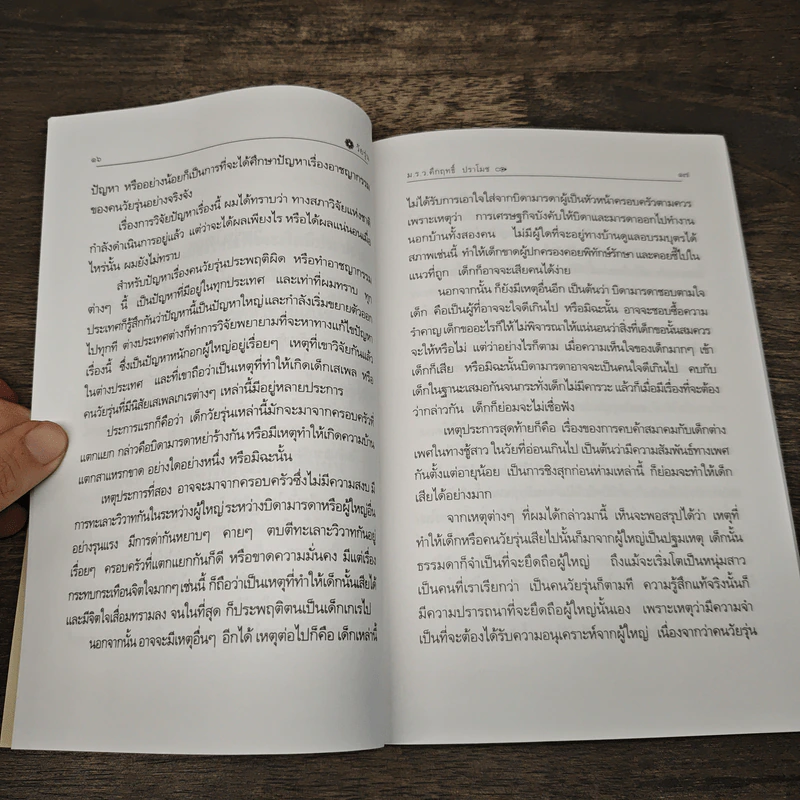 ๑๖
วัยรุ่น
ปัญหา หรืออย่างน้อยก็เป็นการที่จะได้ศึกษาปัญหาเรื่องอาชญากรรม
ของคนวัยรุ่นอย่างจริงจัง
เรื่องการวิจัยปัญหาเรื่องนี้ ผมได้ทราบว่า ทางสภาวิจัยแห่งชาติ
กำลังดำเนินการอยู่แล้ว แต่ว่าจะได้ผลเพียงไร หรือได้ผลแน่นอนเมื่อ
ไหร่นั้น ผมยังไม่ทราบ
สำหรับปัญหาเรื่องคนวัยรุ่นประพฤติผิด หรือทำอาชญากรรม
ต่างๆ นี้ เป็นปัญหาที่มีอยู่ในทุกประเทศ และเท่าที่ผมทราบ ทุก
ประเทศก็รู้สึกกันว่าปัญหานี้เป็นปัญหาใหญ่และกำลังเริ่มขยายตัวออก
ไปทุกที ต่างประเทศต่างก็ทำการวิจัยพยายามที่จะหาทางแก้ไขปัญหา
เรื่องนี้ ซึ่งเป็นปัญหาหนักอกผู้ใหญ่อยู่เรื่อยๆ เหตุที่เขาวิจัยกันแล้ว
ในต่างประเทศ และที่เขาถือว่าเป็นเหตุที่ทำให้เกิดเด็กเสเพล หรือ
คนวัยรุ่นที่มีนิสัยเสเพลเกเรต่างๆ เหล่านี้มีอยู่หลายประการ
ประการแรกก็คือว่า เด็กวัยรุ่นเหล่านี้มักจะมาจากครอบครัวที่
แตกแยก กล่าวคือบิดามารดาหย่าร้างกัน หรือมีเหตุทำให้เกิดความบ้าน
แตกสาแหรกขาด อย่างใดอย่างหนึ่ง หรือมิฉะนั้น
เหตุประการที่สอง อาจจะมาจากครอบครัวซึ่งไม่มีความสงบ มี
การทะเลาะวิวาทกันในระหว่างผู้ใหญ่ ระหว่างบิดามารดาหรือผู้ใหญ่อื่น
อย่างรุนแรง มีการด่ากันหยาบๆ คายๆ ตบตีทะเลาะวิวาทกันอยู่
เรื่อยๆ ครอบครัวที่แตกแยกกันก็ดี หรือขาดความมั่นคง มีแต่เรื่อง
กระทบกระเทือนจิตใจมากๆ เช่นนี้ ก็ถือว่าเป็นเหตุที่ทำให้เด็กนั้นเสียได้
และมีจิตใจเสื่อมทรามลง จนในที่สุด ก็ประพฤติตนเป็นเด็กเกเรไป
นอกจากนั้น อาจจะมีเหตุอื่นๆ อีกได้ เหตุต่อไปก็คือ เด็กเหล่านี้
ม.ร.ว.คึกฤทธิ์ ปราโมช
๑๗
ไม่ได้รับการเอาใจใส่จากบิดามารดาผู้เป็นหัวหน้าครอบครัวตามควร
เพราะเหตุว่า การเศรษฐกิจบังคับให้บิดาและมารดาออกไปทำงาน
นอกบ้านทั้งสองคน ไม่มีผู้ใดที่จะอยู่ทางบ้านดูแลอบรมบุตรได้
สภาพเช่นนี้ ทำให้เด็กขาดผู้ปกครองคอยพิทักษ์รักษา และคอยชี้ไปใน
แนวที่ถูก เด็กก็อาจจะเสียคนได้ง่าย
นอกจากนั้น ก็ยังมีเหตุอื่นอีก เป็นต้นว่า บิดามารดาชอบตามใจ
เด็ก คือเป็นผู้ที่อาจจะใจดีเกินไป หรือมิฉะนั้น อาจจะชอบซื้อความ
รำคาญ เด็กขออะไรก็ให้ ไม่พิจารณาให้แน่นอนว่าสิ่งที่เด็กขอนั้นสมควร
จะให้หรือไม่ แต่ว่าอย่างไรก็ตาม เมื่อความเห็นใจของเด็กมากๆ เข้า
เด็กก็เสีย หรือมิฉะนั้นบิดามารดาอาจจะเป็นคนใจดีเกินไป คบกับ
เด็กในฐานะเสมอกันจนกระทั่งเด็กไม่มีคารวะ แล้วก็เมื่อมีเรื่องที่จะต้อง
ว่ากล่าวกัน เด็กก็ย่อมจะไม่เชื่อฟัง
เหตุประการสุดท้ายก็คือ เรื่องของการคบค้าสมาคมกับเด็กต่าง
เพศในทางชู้สาว ในวัยที่อ่อนเกินไป เป็นต้นว่ามีความสัมพันธ์ทางเพศ
กันตั้งแต่อายุน้อย เป็นการชิงสุกก่อนห่ามเหล่านี้ ก็ย่อมจะทำให้เด็ก
เสียได้อย่างมาก
จากเหตุต่างๆ ที่ผมได้กล่าวมานี้ เห็นจะพอสรุปได้ว่า เหตุที่
ทำให้เด็กหรือคนวัยรุ่นเสียไปนั้นก็มาจากผู้ใหญ่เป็นปฐมเหตุ เด็กนั้น
ธรรมดาก็จำเป็นที่จะยึดถือผู้ใหญ่ ถึงแม้จะเริ่มโตเป็นหนุ่มสาว
เป็นคนที่เราเรียกว่า เป็นคนวัยรุ่นก็ตามที ความรู้สึกแท้จริงนั้นก็
มีความปรารถนาที่จะยึดถือผู้ใหญ่นั้นเอง เพราะเหตุว่ามีความจำ
เป็นที่จะต้องได้รับความอนุเคราะห์จากผู้ใหญ่ เนื่องจากว่าคนวัยรุ่น